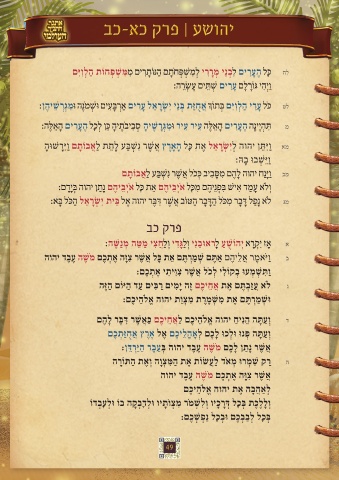 יהושע | פרק כא-כב
לח כָּל הֶעָרִים לִבְנֵי מְרָרִי לְמִשְׁפְּחֹתָם הַנּוֹתָרִים מִמִּשְׁפְּחוֹת הַלְוִיִּם
וַיְהִי גּוֹרָלָם עָרִים שְׁתֵּים עֶשְׂרֵה:
לט כֹּל עָרֵי הַלְוִיִּם בְּתוֹךְ אֲחֻזַּת בְּנֵי יִשְׂרָאֵל עָרִים אַרְבָּעִים וּשְׁמֹנֶה וּמִגְרְשֵׁיהֶן:
מ תִּהְיֶינָה הֶעָרִים הָאֵלֶּה עִיר עִיר וּמִגְרָשֶׁיהָ סְבִיבֹתֶיהָ כֵּן לְכָל הֶעָרִים הָאֵלֶּה:
מא וַיִּתֵּן יהוה לְיִשְׂרָאֵל אֶת כָּל הָאָרֶץ אֲשֶׁר נִשְׁבַּע לָתֵת לַאֲבוֹתָם וַיִּרָשׁוּהָ
וַיֵּשְׁבוּ בָהּ:
מב וַיָּנַח יהוה לָהֶם מִסָּבִיב כְּכֹל אֲשֶׁר נִשְׁבַּע לַאֲבוֹתָם
וְלֹא עָמַד אִישׁ בִּפְנֵיהֶם מִכָּל אֹיְבֵיהֶם אֵת כָּל אֹיְבֵיהֶם נָתַן יהוה בְּיָדָם:
מג לֹא נָפַל דָּבָר מִכֹּל הַדָּבָר הַטּוֹב אֲשֶׁר דִּבֶּר יהוה אֶל בֵּית יִשְׂרָאֵל הַכֹּל בָּא:
פרק כב
א אָז יִקְרָא יְהוֹשֻׁעַ לָראוּבֵנִי וְלַגָּדִי וְלַחֲצִי מַטֵּה מְנַשֶּׁה:
ב וַיֹּאמֶר אֲלֵיהֶם אַתֶּם שְׁמַרְתֶּם אֵת כָּל אֲשֶׁר צִוָּה אֶתְכֶם מֹשֶׁה עֶבֶד יהוה
וַתִּשְׁמְעוּ בְקוֹלִי לְכֹל אֲשֶׁר צִוִּיתִי אֶתְכֶם:
ג לֹא עֲזַבְתֶּם אֶת אֲחֵיכֶם זֶה יָמִים רַבִּים עַד הַיּוֹם הַזֶּה
וּשְׁמַרְתֶּם אֶת מִשְׁמֶרֶת מִצְוַת יהוה אֱלֹהֵיכֶם:
ד וְעַתָּה הֵנִיחַ יהוה אֱלֹהֵיכֶם לַאֲחֵיכֶם כַּאֲשֶׁר דִּבֶּר לָהֶם
וְעַתָּה פְּנוּ וּלְכוּ לָכֶם לְאָהֳלֵיכֶם אֶל אֶרֶץ אֲחֻזַּתְכֶם
אֲשֶׁר נָתַן לָכֶם מֹשֶׁה עֶבֶד יהוה בְּעֵבֶר הַיַּרְדֵּן:
ה רַק שִׁמְרוּ מְאֹד לַעֲשׂוֹת אֶת הַמִּצְוָה וְאֶת הַתּוֹרָה
אֲשֶׁר צִוָּה אֶתְכֶם מֹשֶׁה עֶבֶד יהוה
לְאַהֲבָה אֶת יהוה אֱלֹהֵיכֶם
וְלָלֶכֶת בְּכָל דְּרָכָיו וְלִשְׁמֹר מִצְוֹתָיו וּלְדָבְקָה בוֹ וּלְעָבְדוֹ
בְּכָל לְבַבְכֶם וּבְכָל נַפְשְׁכֶם:
49